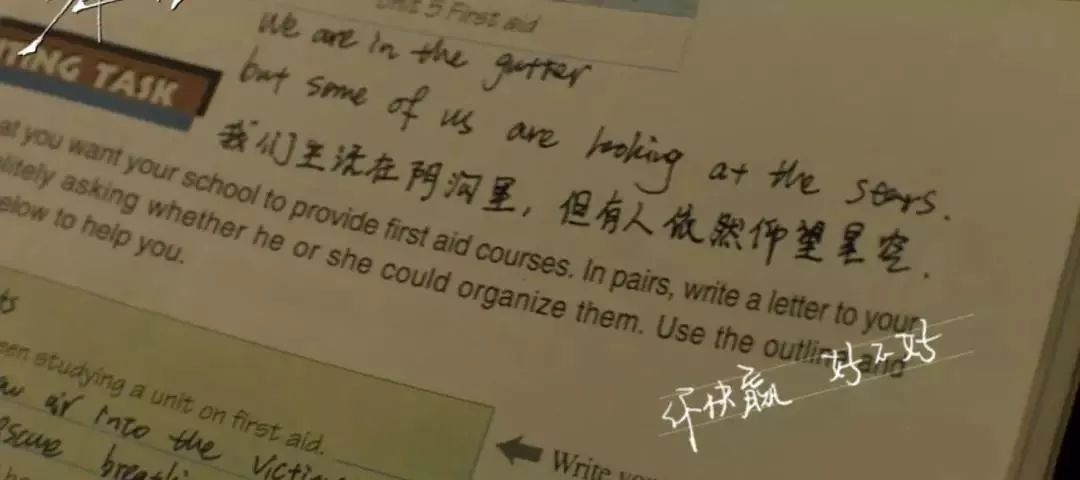 Unit 5 First aid
We are in the gutter
but some of us are looking at the stars.
我们生活在阴沟里，但有人依然仰望星空.
ITING TASK
at you want your school to provide first aid courses. In pairs, write a letter to your
olitely asking whether he or she could organize them. Use the outline and
elow to help you.
ts
een studying a unit on first aid.
air into the victim
escue breathi
Write you
快赢 好不好